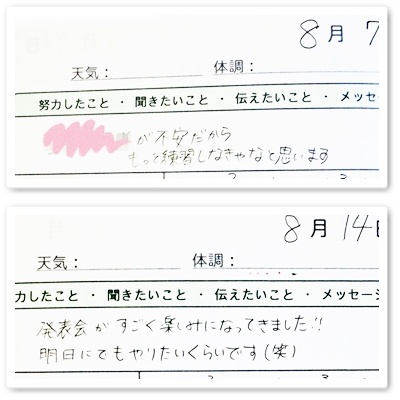 8月 7
天気： 体調：
努力したこと ・ 聞きたいこと ・ 伝えたいこと ・ メッセ
が不安だから
もっと練習しなきゃなと思います
8月 14日
天気： 体調：
力したこと ・ 聞きたいこと ・ 伝えたいこと ・ メッセージ
発表会がすごく楽しみになってきました!!
明日にでもやりたいくらいです(笑)